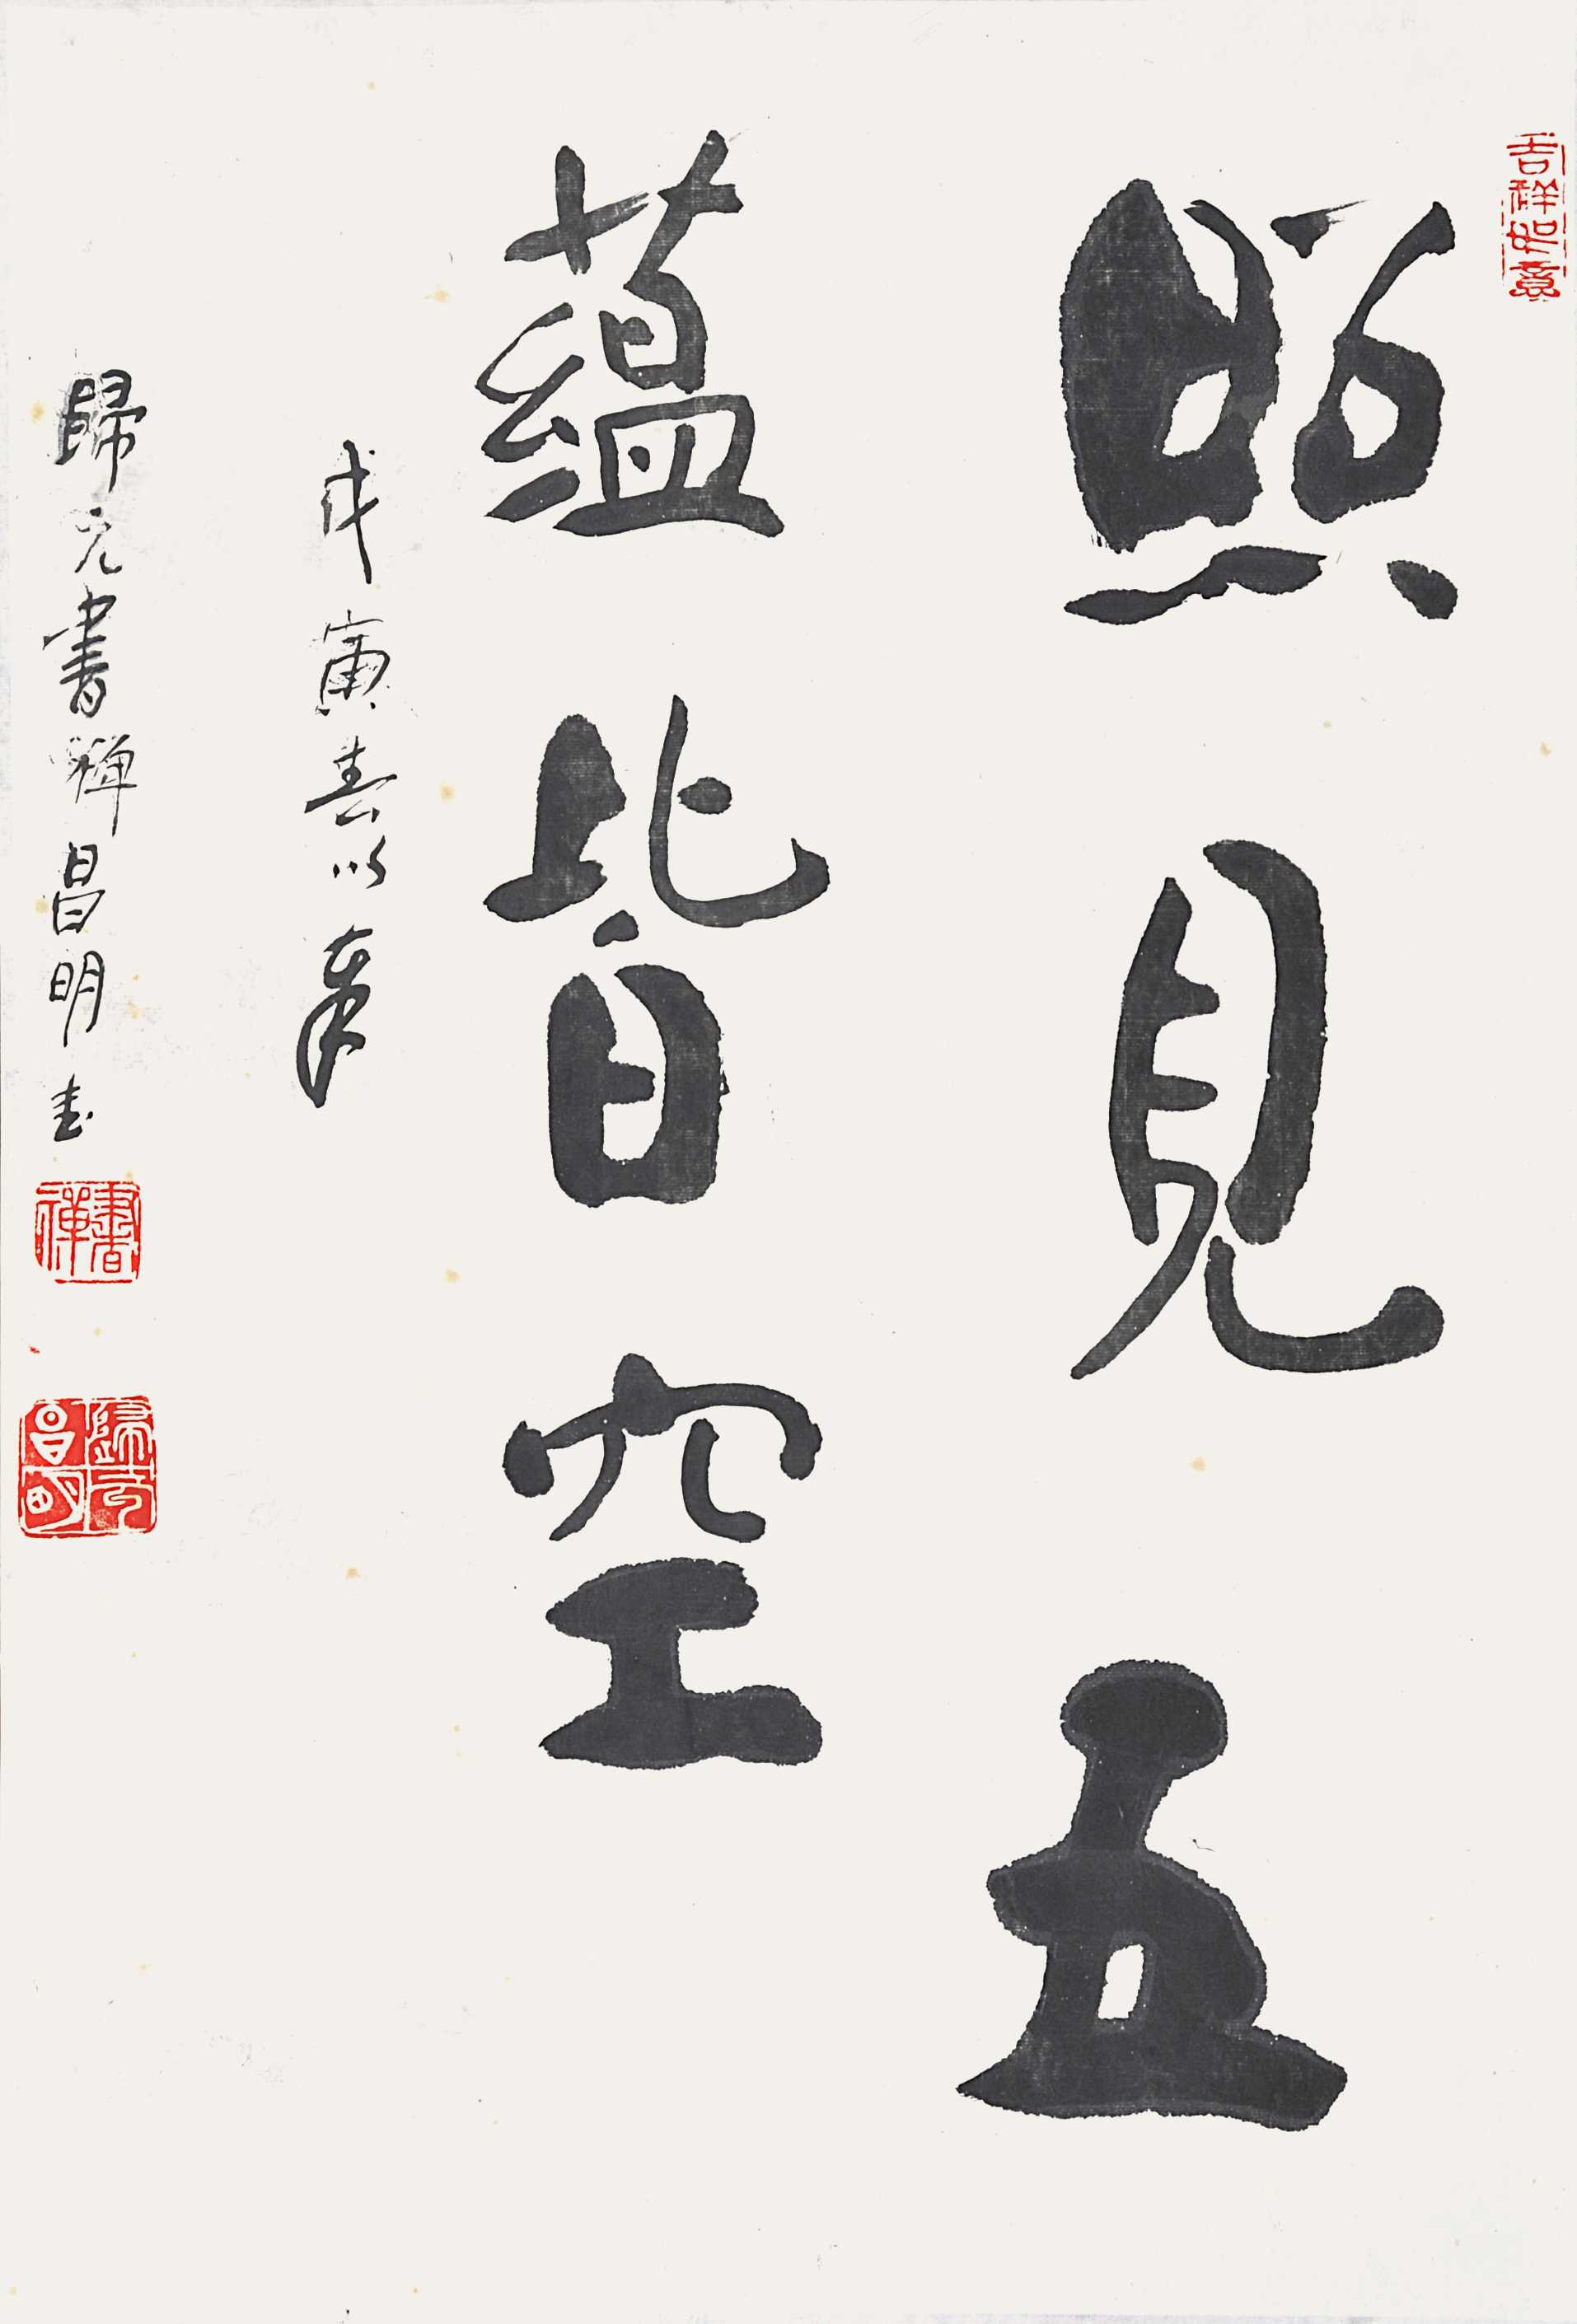 吉祥如意
照見五
蘊皆空
戊寅春以奉
歸元書禪昌明書
書禪
歸元昌明